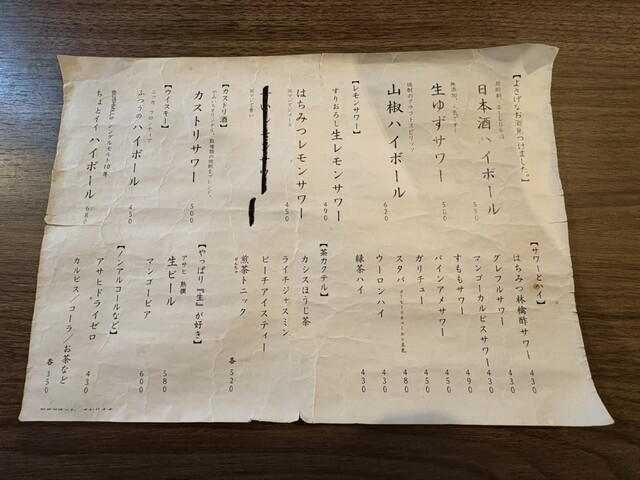 【よさげなお酒見つけました。】
日本酒ハイボール
550
無添加、人気です。
生ゆずサワー
500
焼酎のクラフトスピリッツ
山椒ハイボール
620
【レモンサワー】
すりおろし生レモンサワー
490
はちみつレモンサワー
450
【カストリ酒】
カストリサワー
500
【ウイスキー】
ニッカ フロンティア
ふつうのハイボール
450
シングルモルト10年
ちょとイイハイボール
680
【サワーとハイ】
はちみつ林檎酢サワー
430
グレフルサワー
430
マンゴーカルピスサワー
430
すももサワー
490
パインアメサワー
450
ガリチュー
450
スタバ
480
ウーロンハイ
430
緑茶ハイ
430
【茶カクテル】
カシスほうじ茶
ライチジャスミン
ピーチアイスティー
煎茶トニック
各520
【やっぱり『生』が好き】
アサヒ 熟撰
生ビール
580
マンゴービア
600
【ノンアルコールなど】
アサヒドライゼロ
430
カルピス／コーラ／お茶など
各350